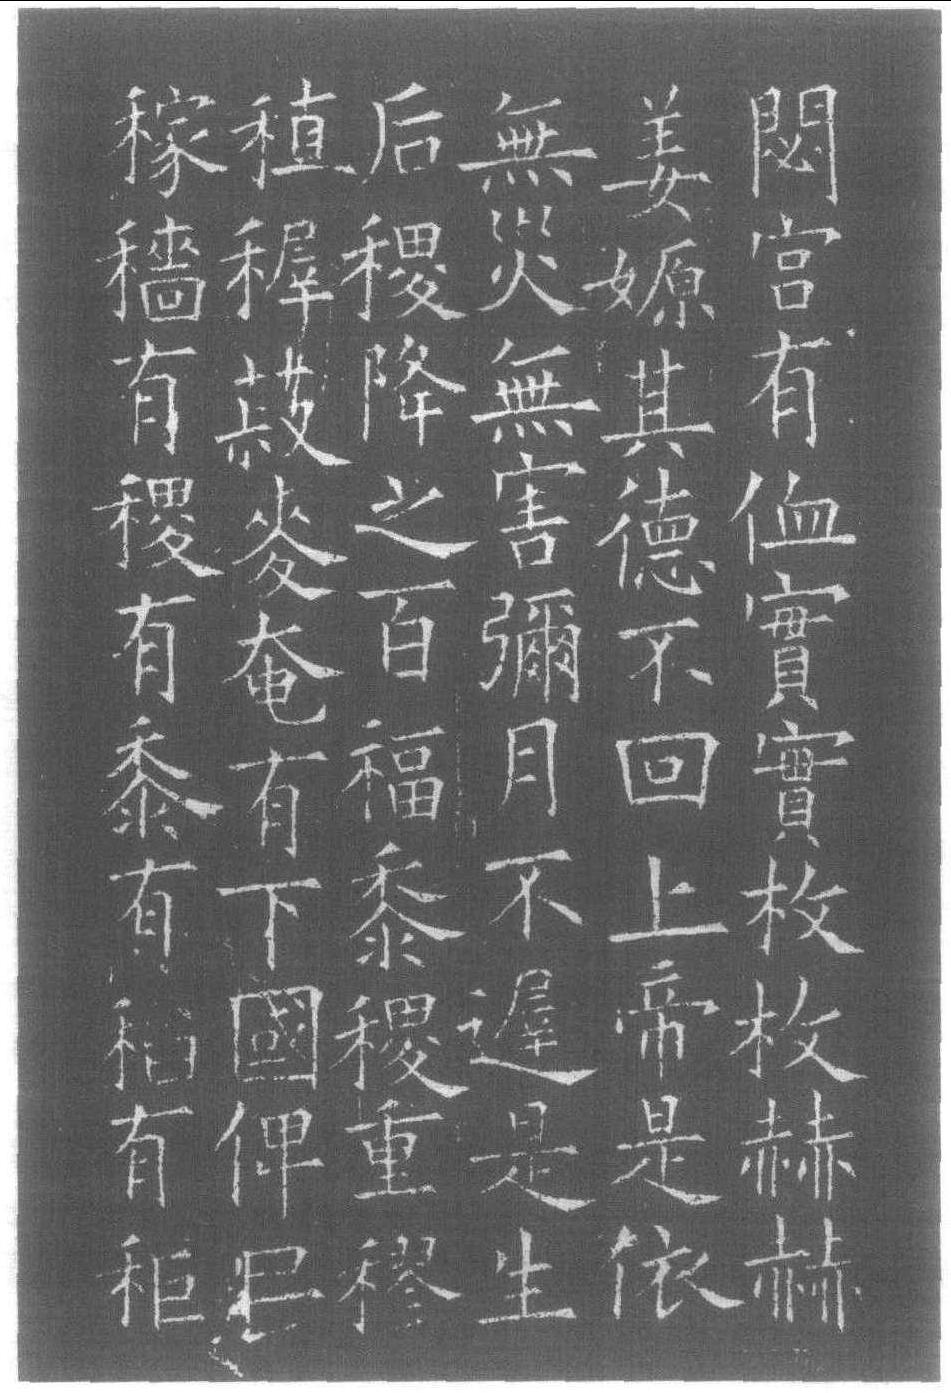 閟宮有侐實實枚枚赫赫
姜嫄其德不回上帝是依
無災無害彌月不遲是生
后稷降之百福黍稷重穋
稙稺菽麥奄有下國俾民
稼穡有稷有黍有稻有秬